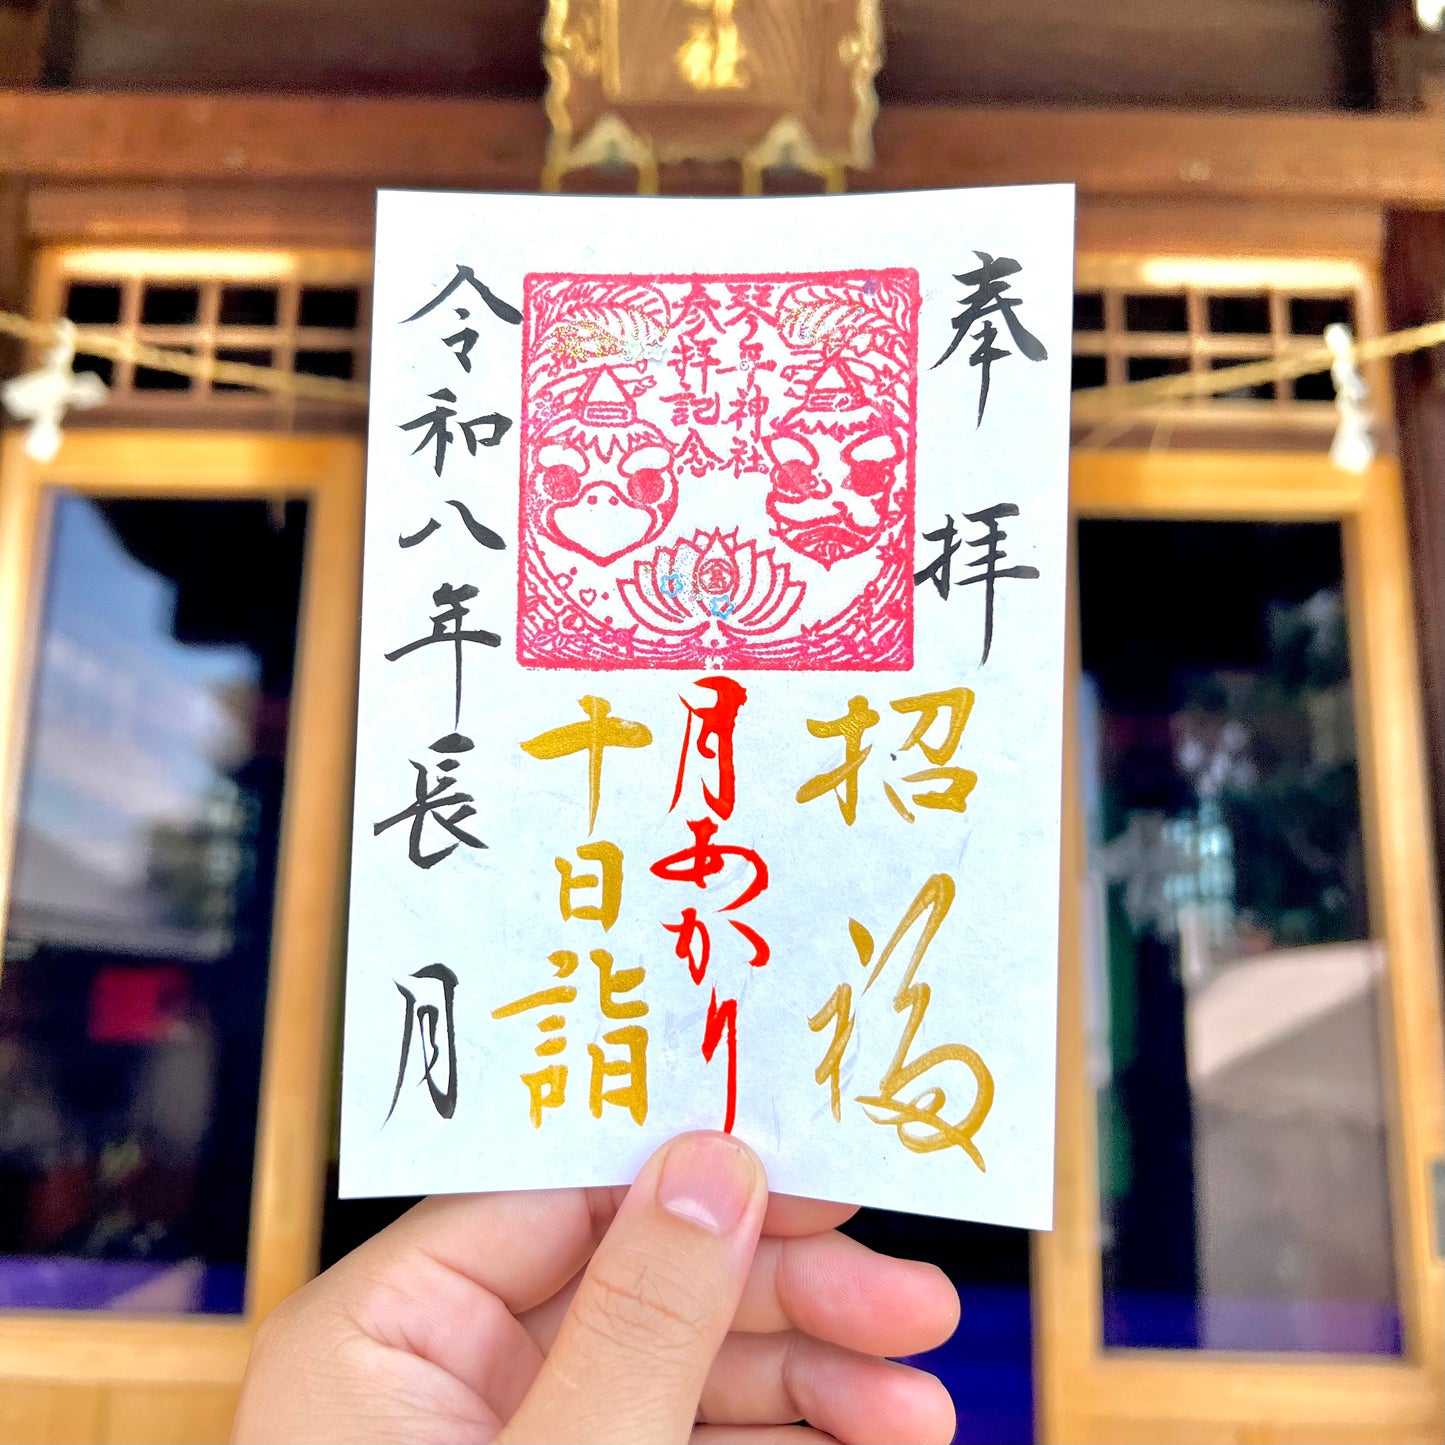 奉拝
琴平神社
参拝記念
金
招福
月あかり
十日詣
令和八年長月